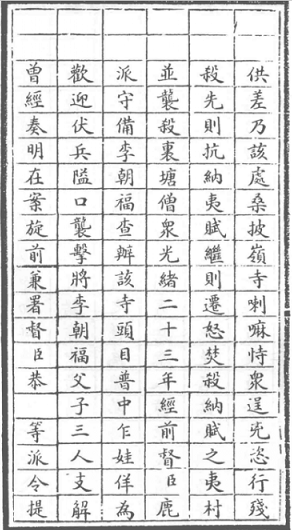 供差乃該處桑披嶺寺喇嘛恃眾逞兇恣行殘
殺先則抗納夷賦繼則遷怒焚殺納賦之夷村
並襲殺裏塘僧眾光緒二十三年經前督臣鹿
派守備李朝福查辦該寺頭目普中乍娃佯為
歡迎伏兵隘口襲擊將李朝福父子三人支解
曾經奏明在案旋前兼署督臣恭 等派令提